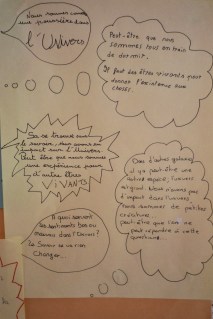 Nous sommes comme
une poussière dans
l'Univers
Peut-être que nous
sommes tous en train
de dormir.
Il faut des êtres vivants pour
donner l'existence aux
choses.
Sa se trouve nous
le savoir, nous avons un
impact sur l'Univers.
Peut être que nous sommes
une expérience pour
d'autres êtres
ViVANTS
Dans d'autres galaxies
il y a peut être une
autre espèce, l'univers
est grand. Nous n'avons pas
d'impact dans l'univers
nous sommes de petites
créatures.
peut-être que l'on ne
peut répondre à cette
question.
A quoi servent
les sentiments bons ou
mauvais dans l'Univers?
Le Savoir ne va rien
changer.